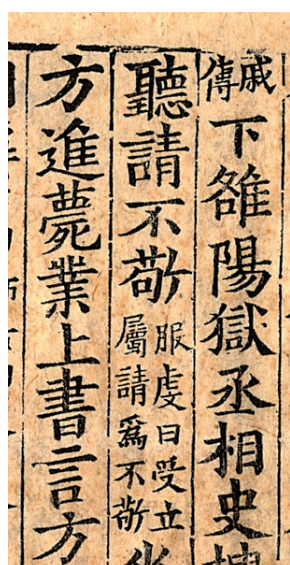 戚
傳
下雒陽獄丞相史
聽請不敬
服虔曰受立
屬請爲不敬
方進薨業上書言方